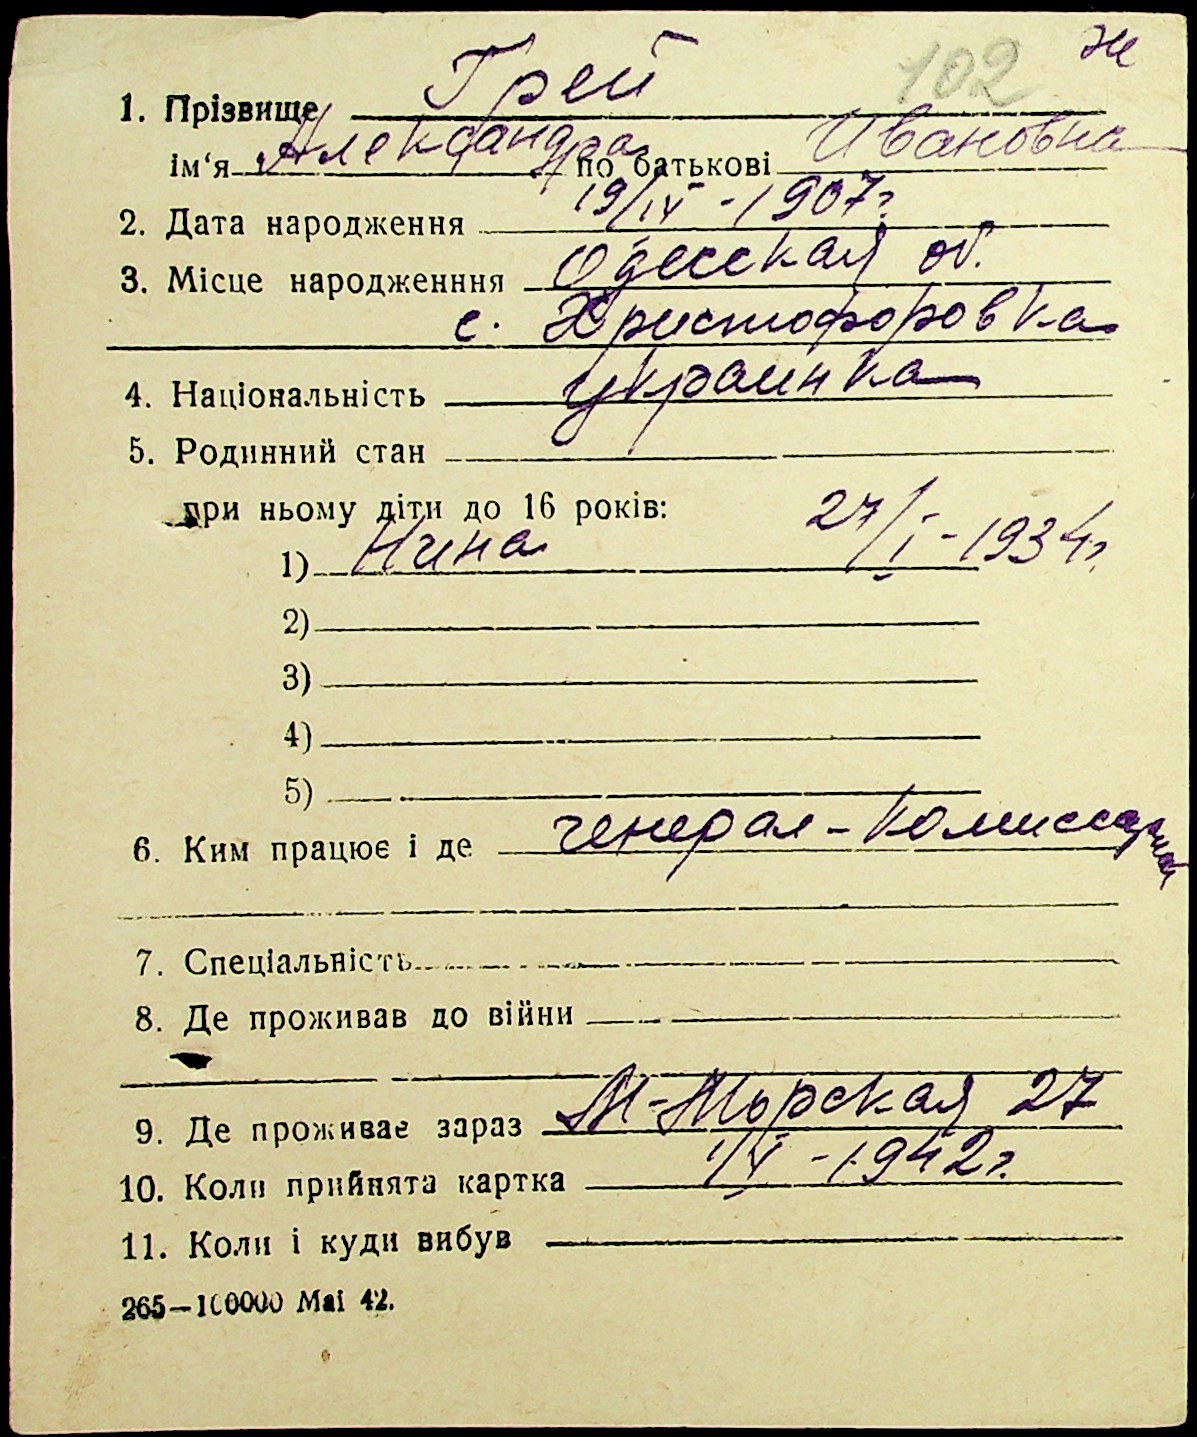 102 Ж
1. Прізвище Грей
ім‘я Александра по батькові Ивановна
2. Дата народження 19/IV - 1907г.
3. Місце народженння Одесская об.
с. Христофоровка
4. Національність украинка
5. Родинний стан
при ньому діти до 16 років:
1) Нина 27/I - 1934г.
2)
3)
4)
5)
6. Ким працює і де генерал-комиссариат
7. Спеціальність
8. Де проживав до війни
9. Де проживає зараз М-Морская 27
10. Коли прийнята картка 1/V - 1942г.
11. Коли і куди вибув
265—100000 Mai 42.